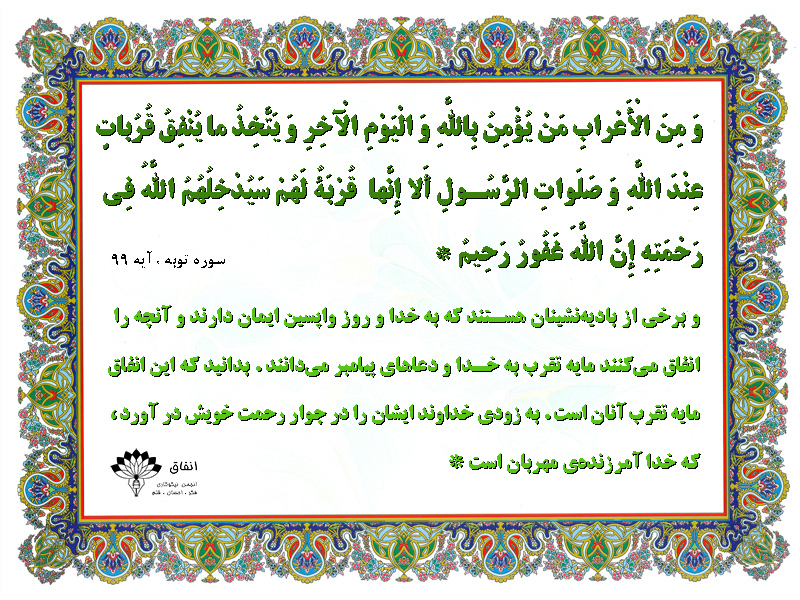 وَ مِنَ الْأَعْرابِ مَنْ يُؤْمِنُ بِاللَّهِ وَ الْيَوْمِ الْآخِرِ وَ يَتَّخِذُ ما يُنْفِقُ قُرُباتٍ
عِنْدَ اللَّهِ وَ صَلَواتِ الرَّسُولِ أَلا إِنَّها قُرْبَةٌ لَهُمْ سَيُدْخِلُهُمُ اللَّهُ فِی
رَحْمَتِهِ إِنَّ اللَّهَ غَفُورٌ رَحِیمٌ *
سوره توبه ، آیه ۹۹
و برخی از بادیه‌نشینان هستند که به خدا و روز واپسین ایمان دارند و آنچه را
انفاق می‌کنند مایه تقرب به خدا و دعاهای پیامبر می‌دانند . بدانید که این انفاق
مایه تقرب آنان است . به زودی خداوند ایشان را در جوار رحمت خویش در آورد ،
که خدا آمرزنده‌ی مهربان است *
انفاق
انجمن نیکوکاری
فکر ، احسان ، قلم